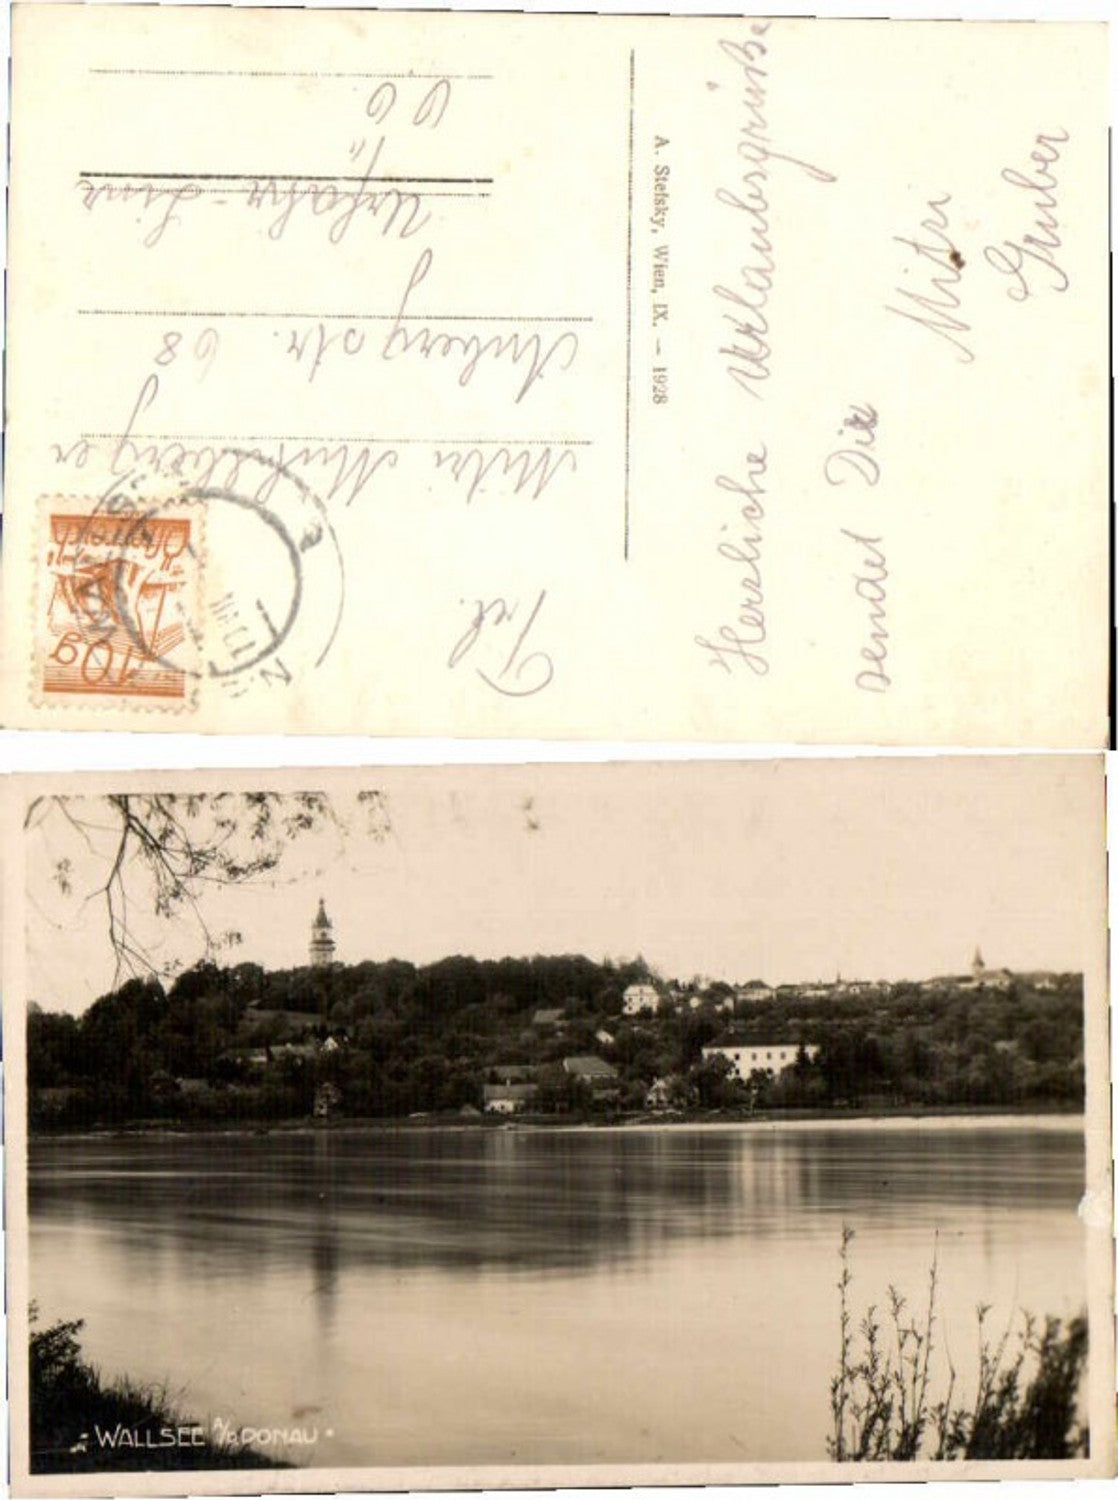 Herzliche Urlaubsgrüße
sendet Dir
Mitzi
Gruber
A. Stefsky, Wien, IX. — 1928
Frl.
Mitzi
str. 68
Urfahr - Linz
Österreich
10g
WALLSEE A/D DONAU